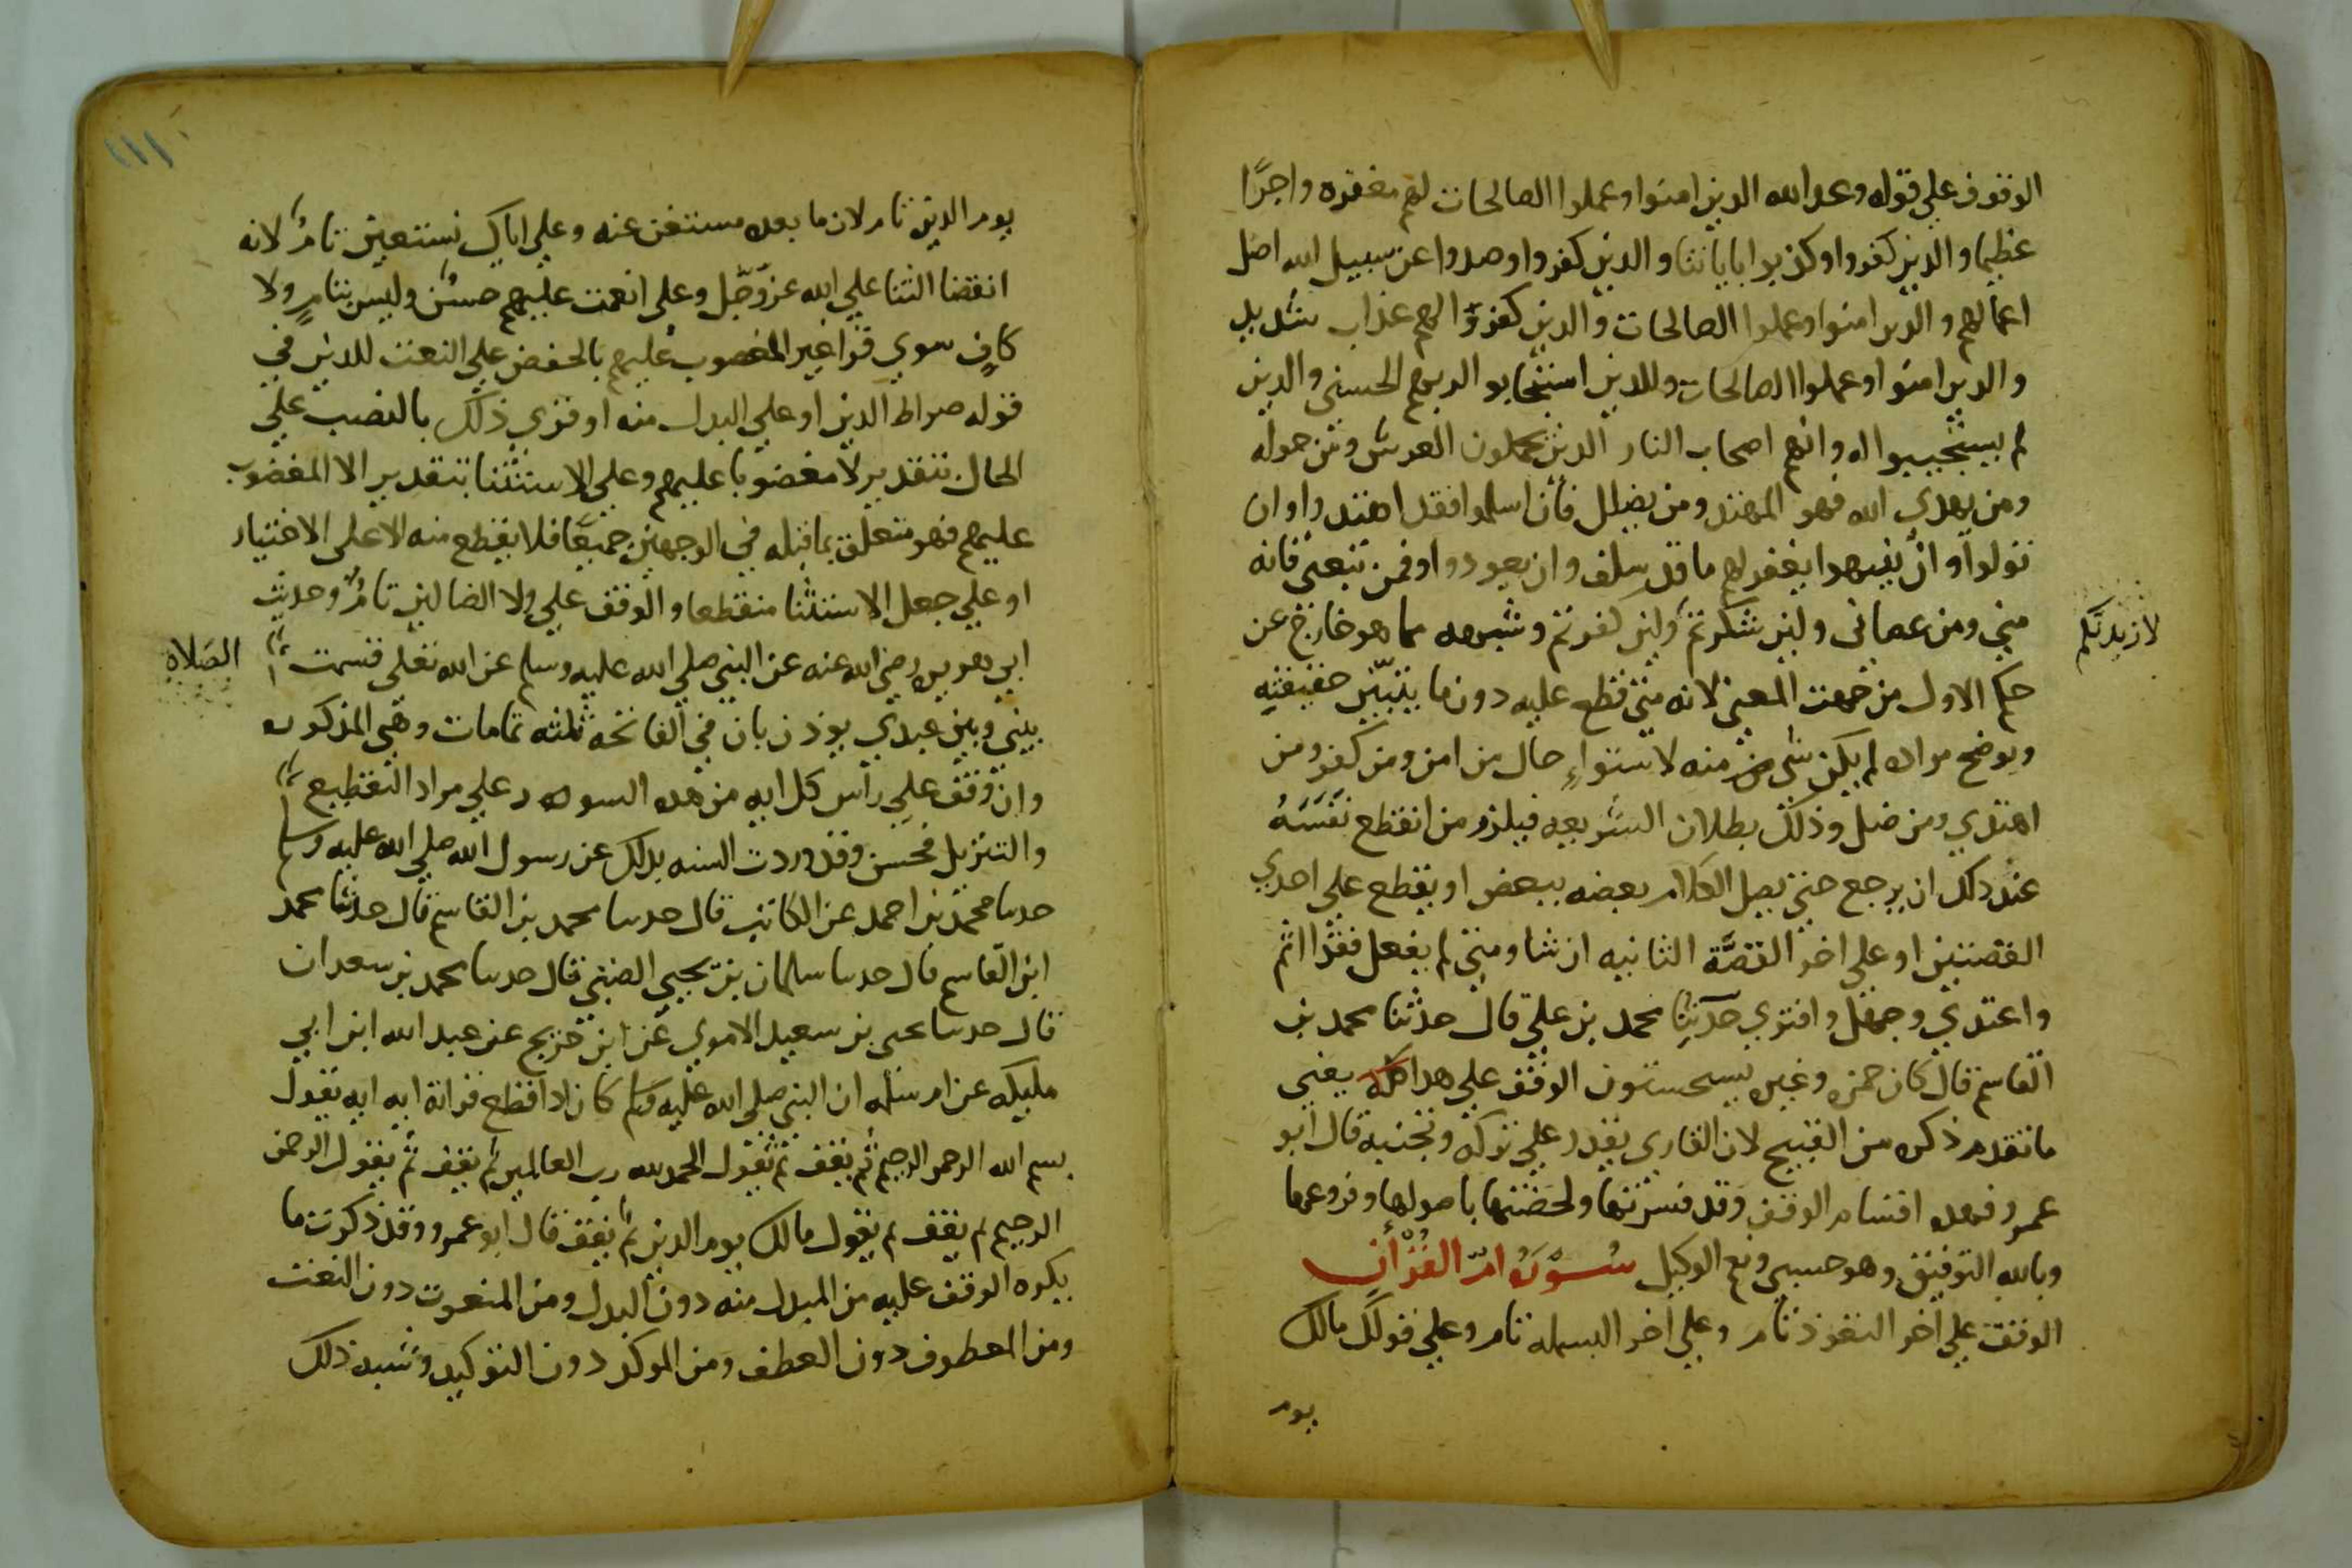 الوقوف علي قوله وعد الله الدين امنوا وعملوا الصالحات لهم مغفره واجرًا
عظيما والدين كفروا وكذبوا باياتنا والدين كفروا وصدوا عن سبيل الله اضل
اعمالهم والدين امنوا وعملوا الصالحات والدين كفروا لهم عذاب شديد
والدين امنوا وعملوا الصالحات وللدين استجابوا لربهم الحسني والدين
لم يستجيبوا له وانهم اصحاب النار الدين يحملون العرش ومن حوله
ومن يهدي الله فهو المهتد ومن يضلل فأن اسلموا فقد اهتدوا وان
تولوا و ان ينتهوا يغفر لهم ما قد سلف وان يعودوا وفمن تبعني فانه
مني ومن عصاني ولين شكرتم ولين كفرتم وشبهه مما هو خارج عن
لازيدنكم
حكم الاول من جهت المعني لانه متي قطع عليه دون ما يتبيّن حقيقته
ويوضح مراده لم يكن شي من منه لاستواءِ حال من امن ومن كفر ومن
اهتدي ومن ضل وذلك بطلان الشريعه فيلزم من انقطع نفسَهُ
عند دلك ان يرجع حتي يصل الكلام بعضه ببعض او يقطع علي احدي
القصتين او علي اخر القصَّة الثانيه ان شا ومتي لم يفعل فقد اثم
واعتدي وجهل وافتري حدثنا محمد بن علي قال حدثنا محمد بن
القاسم قال كان حمزه وغيره يستحسنون الوقف علي هدا كله يعني
ما تقدم ذكره من القبيح لان القاري يقدر علي تركه وتجنبه قال ابو
عمرو فهده اقسام الوقف وقد فسرتها ولخصتها باصولها وفروعها
وبالله التوفيق وهو حسبي ونعم الوكيل سُورَة امّ القُرْأنِ
الوقف علي اخر التعوذ تام وعلي اخر البسمله تام وعلي قولك مالك
يوم
١١١
يوم الدين تام لان ما بعده مستغن عنه وعلي اياك نستعين تامٌ لانه
انقضا الثنا علي الله عزّ وجَل وعلي انعمت عليهم حسنٌ وليس بتامٍ ولا
كافٍ سوي قرا غير المغضوب عليهم بالخفض علي النعت للدين في
قوله صراط الدين او علي البدل منه او قري ذلك بالنصب علي
الحال بتقدير لا مغضوبا عليهم وعلي الاستثنا بتقدير الا المغضوب
عليهم فهو متعلق بما قبله في الوجهين جميعًا فلا يقطع منه الا علي الاختيار
او علي جعل الاستثنا منقطعا والوقف علي ولا الضالين تامٌ وحديث
ابي هريره رضي الله عنه عن النبي صلي الله عليه وسلم عن الله تعلي قسمت
الصَلاه
بيني وبين عبدي يوذن بان في الفاتحه ثلثه تمامات وهي المذكوره
وان وقف علي راس كل ايه من هده السوره علي مراد التقطيع
والتنزيل فحسن وقد وردت السنه بدلك عن رسول الله صلي الله عليه وسلم
حدثنا محمد بن احمد عن الكاتب قال حدثنا محمد بن القاسم قال حدثنا محمد
ابن القاسم قال حدثنا سليمان بن يحيي الضبي قال حدثنا محمد بن سعدان
قال حدثنا يحيي بن سعيد الاموي عن ابن جريج عن عبد الله ابن ابي
مليكه عن ام سلمه ان النبي صلي الله عليه وسلم كان ادا قطع قراته ايه ايه يقول
بسم الله الرحمن الرحيم ثم يقف ثم يقول الحمد لله رب العالمين ثم يقف ثم يقول الرحمن
الرحيم ثم يقف ثم يقول مالك يوم الدين ثم يقف قال ابو عمرو وقد ذكرت ما
يكره الوقف عليه من المبدل منه دون البدل ومن المنعوت دون النعت
ومن المعطوف دون العطف ومن الموكد دون التوكيد وشبه ذلك